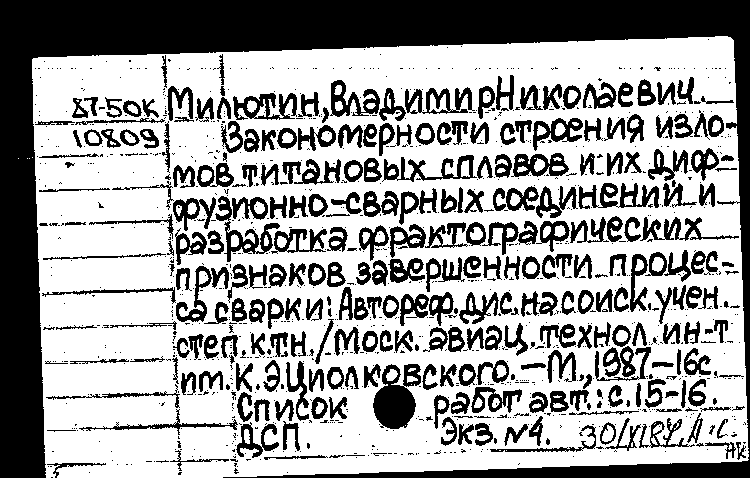 87-50к Милютин, Владимир Николаевич.
10809 Закономерности строения изло-
мов титановых сплавов и их диф-
фузионно-сварных соединений и
разработка фрактографических
признаков завершенности процес-
са сварки: Автореф. дис. на соиск. учен.
степ. к.т.н. / Моск. авиац. технол. ин-т
им. К.Э. Циолковского. — М., 1987. — 16 с.
Список работ авт.: с. 15-16.
ДСП. Экз. № 4.
АК